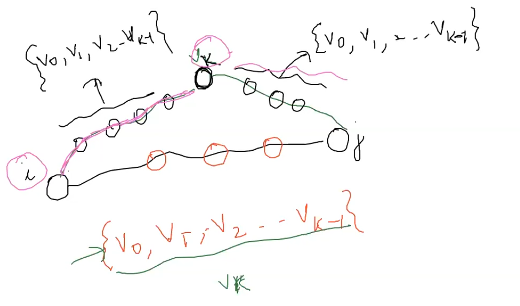 {V0, V1, V2 -- Vk-1}
{V0, V1, 2 -- - Vk-1}
VK
i
j
{V0, V1, -V2 -- - VK-1}
VK